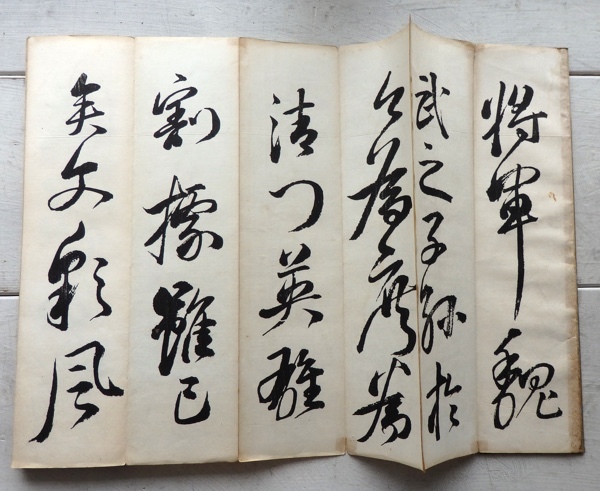 將軍魏
武之子孫於
今為庶為
清門英雄
割據雖已
矣文彩風